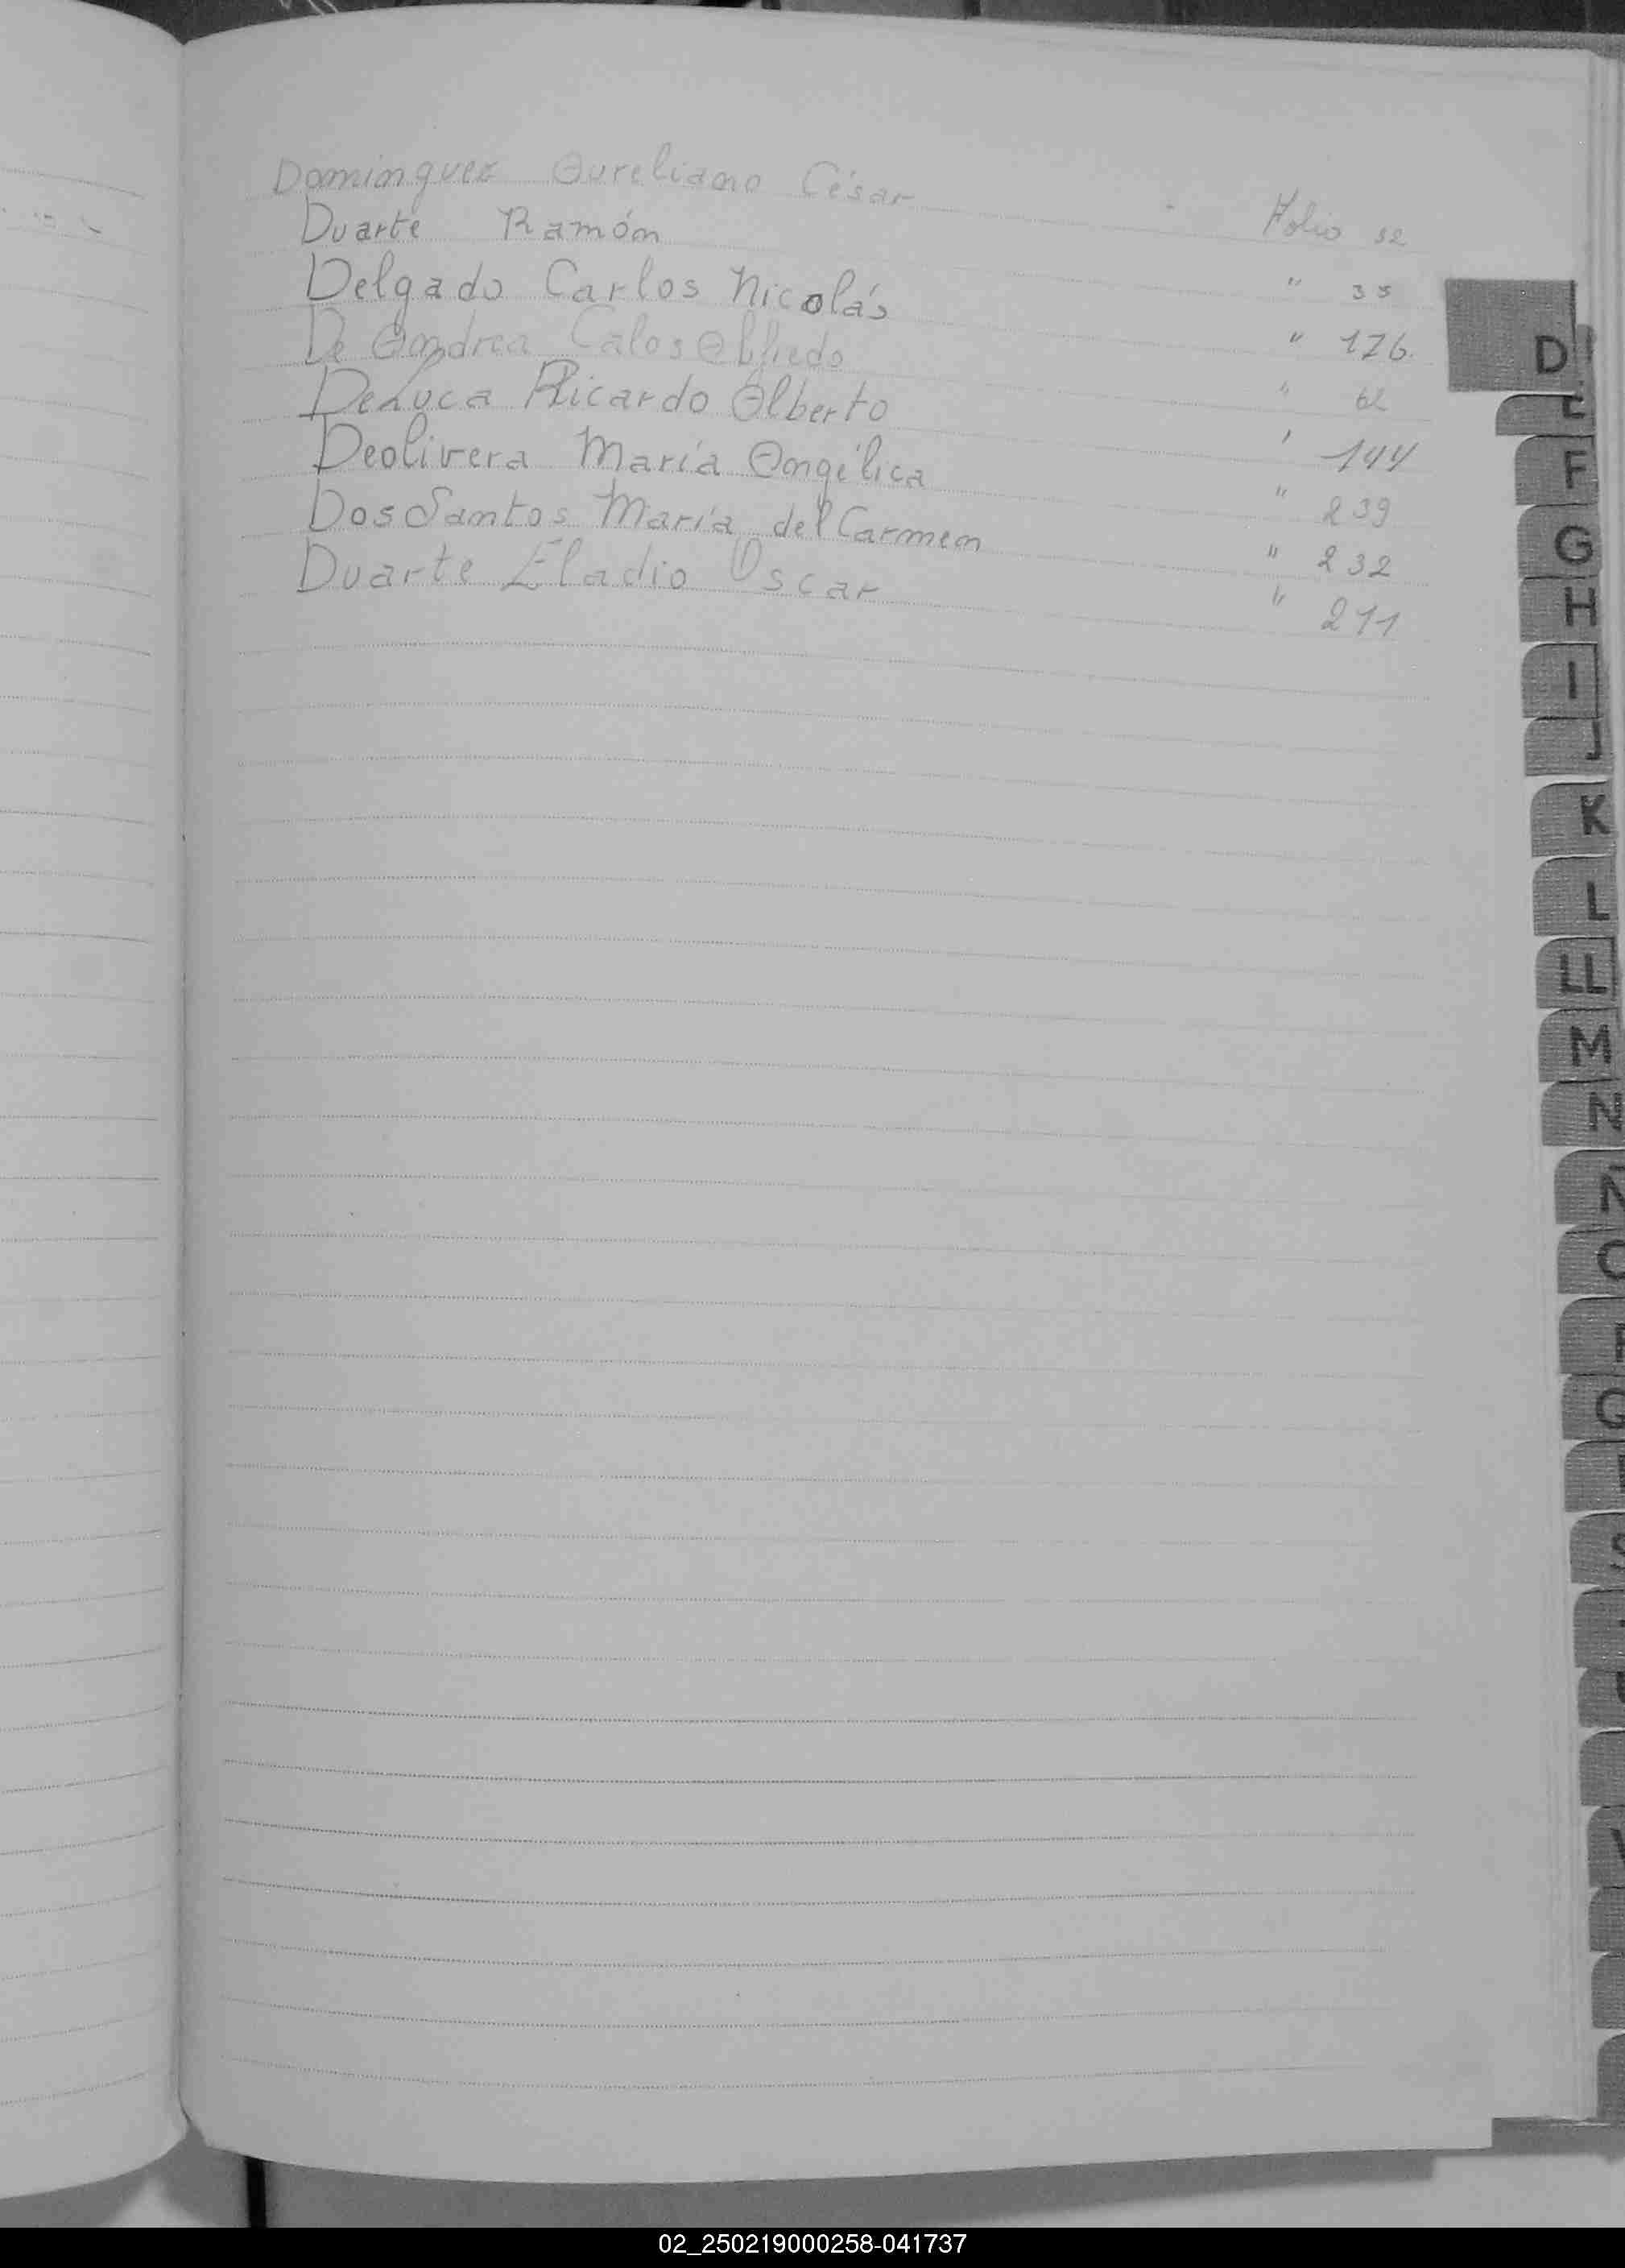 Dominguez Aureliano César Folio 32
Duarte Ramón " 35
Delgado Carlos Nicolás " 176.
De Andrea Calos Alfredo " 62
DeLuca Ricardo Alberto " 144
Deolivera María Angélica " 239
Dos Santos María del Carmen " 232
Duarte Eladio Oscar " 211
D
E
F
G
H
I
J
K
L
LL
M
N
02_250219000258-041737